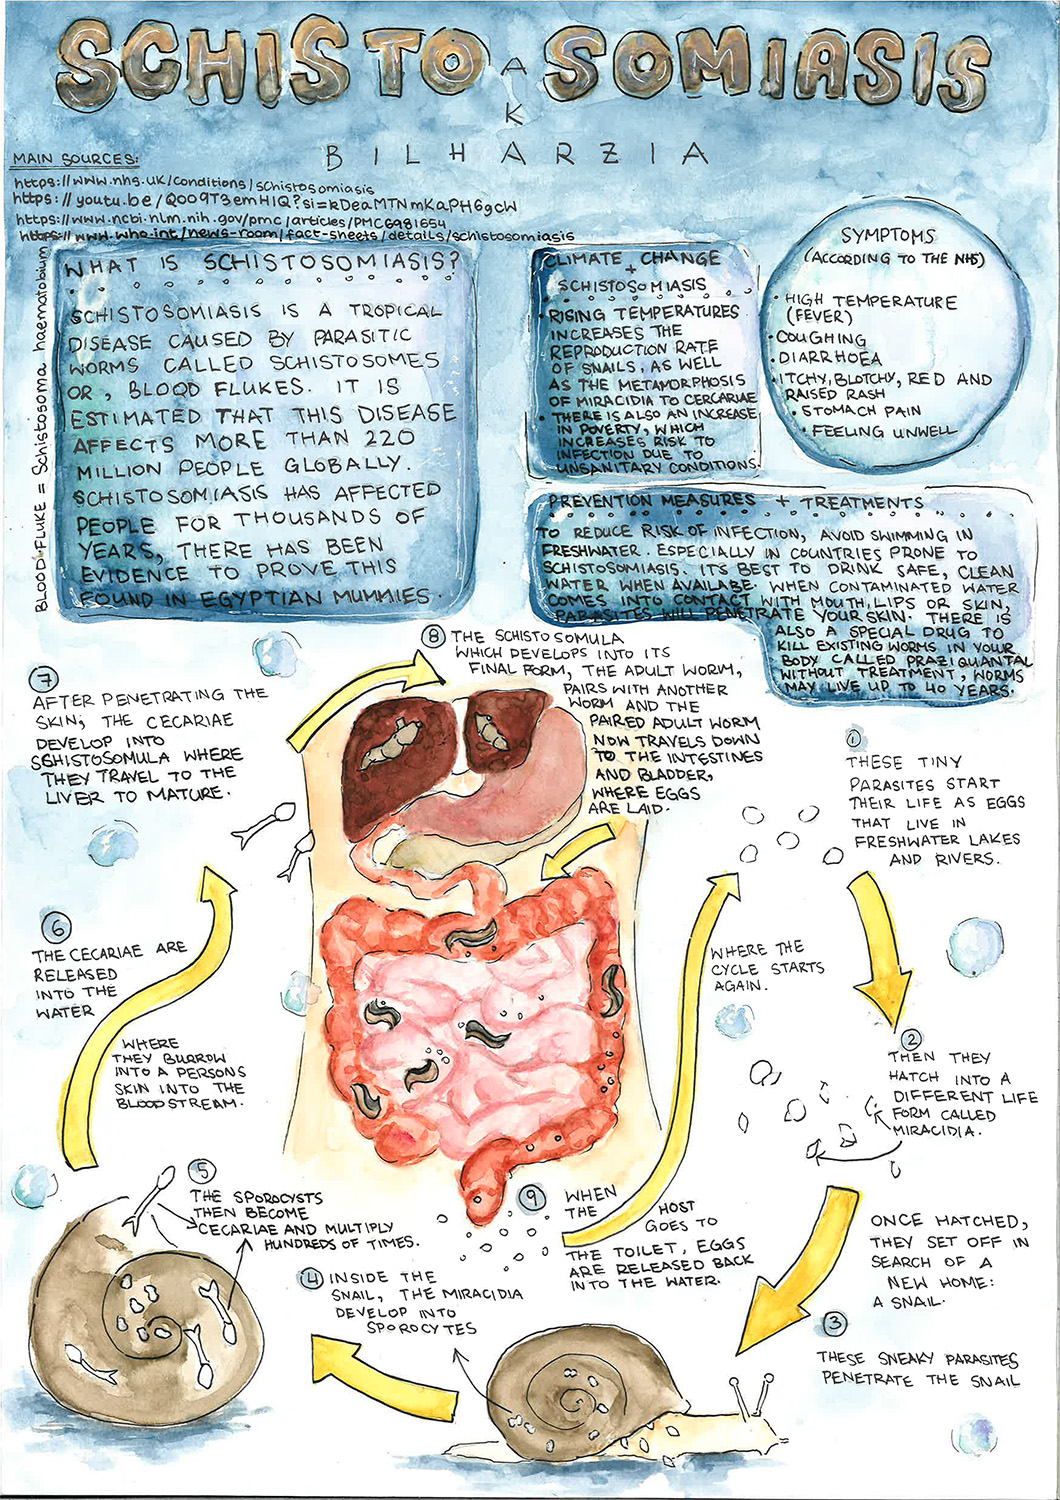 SCHISTOSOMIASIS
AKA
BILHARZIA
MAIN SOURCES:
https://www.nhs.uk/conditions/schistosomiasis
https://youtu.be/Q0o9T3emHIQ?si=kDeaMTNmKaPH6gcW
https://www.ncbi.nlm.nih.gov/pmc/articles/PMC6981654
https://www.who.int/news-room/fact-sheets/details/schistosomiasis
BLOOD FLUKE = Schistosoma haematobium
WHAT IS SCHISTOSOMIASIS?
SCHISTOSOMIASIS IS A TROPICAL
DISEASE CAUSED BY PARASITIC
WORMS CALLED SCHISTOSOMES
OR, BLOOD FLUKES. IT IS
ESTIMATED THAT THIS DISEASE
AFFECTS MORE THAN 220
MILLION PEOPLE GLOBALLY.
SCHISTOSOMIASIS HAS AFFECTED
PEOPLE FOR THOUSANDS OF
YEARS, THERE HAS BEEN
EVIDENCE TO PROVE THIS
FOUND IN EGYPTIAN MUMMIES.
CLIMATE CHANGE
+
SCHISTOSOMIASIS
• RISING TEMPERATURES
INCREASES THE
REPRODUCTION RATE
OF SNAILS, AS WELL
AS THE METAMORPHOSIS
OF MIRACIDIA TO CERCARIAE
• THERE IS ALSO AN INCREASE
IN POVERTY, WHICH
INCREASES RISK TO
INFECTION DUE TO
UNSANITARY CONDITIONS.
SYMPTOMS
(ACCORDING TO THE NHS)
• HIGH TEMPERATURE
(FEVER)
• COUGHING
• DIARRHOEA
• ITCHY, BLOTCHY, RED AND
RAISED RASH
• STOMACH PAIN
• FEELING UNWELL
PREVENTION MEASURES + TREATMENTS
TO REDUCE RISK OF INFECTION, AVOID SWIMMING IN
FRESHWATER. ESPECIALLY IN COUNTRIES PRONE TO
SCHISTOSOMIASIS. IT'S BEST TO DRINK SAFE, CLEAN
WATER WHEN AVAILABE. WHEN CONTAMINATED WATER
COMES INTO CONTACT WITH MOUTH, LIPS OR SKIN,
PARASITES WILL PENETRATE YOUR SKIN. THERE IS
ALSO A SPECIAL DRUG TO
KILL EXISTING WORMS IN YOUR
BODY CALLED PRAZIQUANTAL
WITHOUT TREATMENT, WORMS
MAY LIVE UP TO 40 YEARS.
1
THESE TINY
PARASITES START
THEIR LIFE AS EGGS
THAT LIVE IN
FRESHWATER LAKES
AND RIVERS.
2
THEN THEY
HATCH INTO A
DIFFERENT LIFE
FORM CALLED
MIRACIDIA.
ONCE HATCHED,
THEY SET OFF IN
SEARCH OF A
NEW HOME:
A SNAIL.
3
THESE SNEAKY PARASITES
PENETRATE THE SNAIL
4 INSIDE THE
SNAIL, THE MIRACIDIA
DEVELOP INTO
SPOROCYTES
5
THE SPOROCYSTS
THEN BECOME
CECARIAE AND MULTIPLY
HUNDREDS OF TIMES.
6
THE CECARIAE ARE
RELEASED
INTO THE
WATER
WHERE
THEY BURROW
INTO A PERSONS
SKIN INTO THE
BLOODSTREAM.
7
AFTER PENETRATING THE
SKIN, THE CECARIAE
DEVELOP INTO
SCHISTOSOMULA WHERE
THEY TRAVEL TO THE
LIVER TO MATURE.
8 THE SCHISTOSOMULA
WHICH DEVELOPS INTO ITS
FINAL FORM, THE ADULT WORM,
PAIRS WITH ANOTHER
WORM AND THE
PAIRED ADULT WORM
NOW TRAVELS DOWN
TO THE INTESTINES
AND BLADDER,
WHERE EGGS
ARE LAID.
9 WHEN
THE HOST
GOES TO
THE TOILET, EGGS
ARE RELEASED BACK
INTO THE WATER.
WHERE THE
CYCLE STARTS
AGAIN.